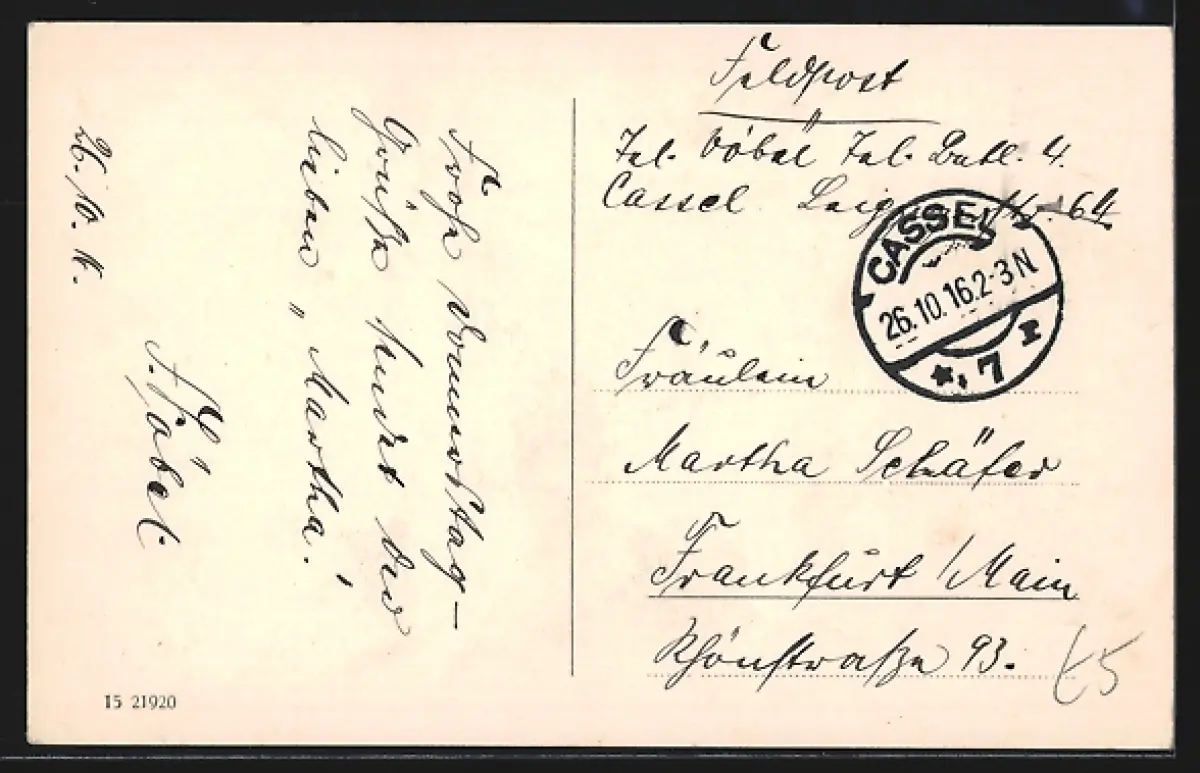 Feldpost
Tel. Göbel Tel. Batl. 4.
Cassel Leipz str. 64.
CASSEL
26.10.16.2-3N
* 7
Fräulein
Martha Schäfer
Frankfurt /Main
Rhönstraße 93.
Frohe Donnerstag-
Grüße sendet der
lieben „ Martha!
F. Göbel.
26./10. 16.
15 21920